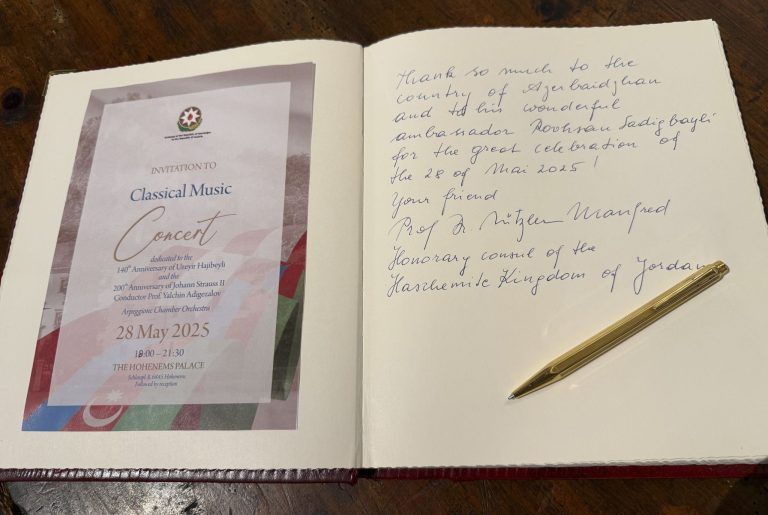 Embassy of the Republic of Azerbaijan
to the Republic of Austria
INVITATION TO
Classical Music
Concert
dedicated to the
140th Anniversary of Uzeyir Hajibeyli
and the
200th Anniversary of Johann Strauss II
Conductor Prof. Yalchin Adigezalov
Arpeggione Chamber Orchestra
28 May 2025
18:00 – 21:30
THE HOHENEMS PALACE
Followed by reception
Thank so much to the
country of Azerbaidghan
and to his wonderful
ambassador Rovhsan Sadigbayli
for the great celebration of
the 28 of Mai 2025!
Your friend
Prof Dr. Manfred
Honorary consul of the
Haschemite Kingdom of Jordan